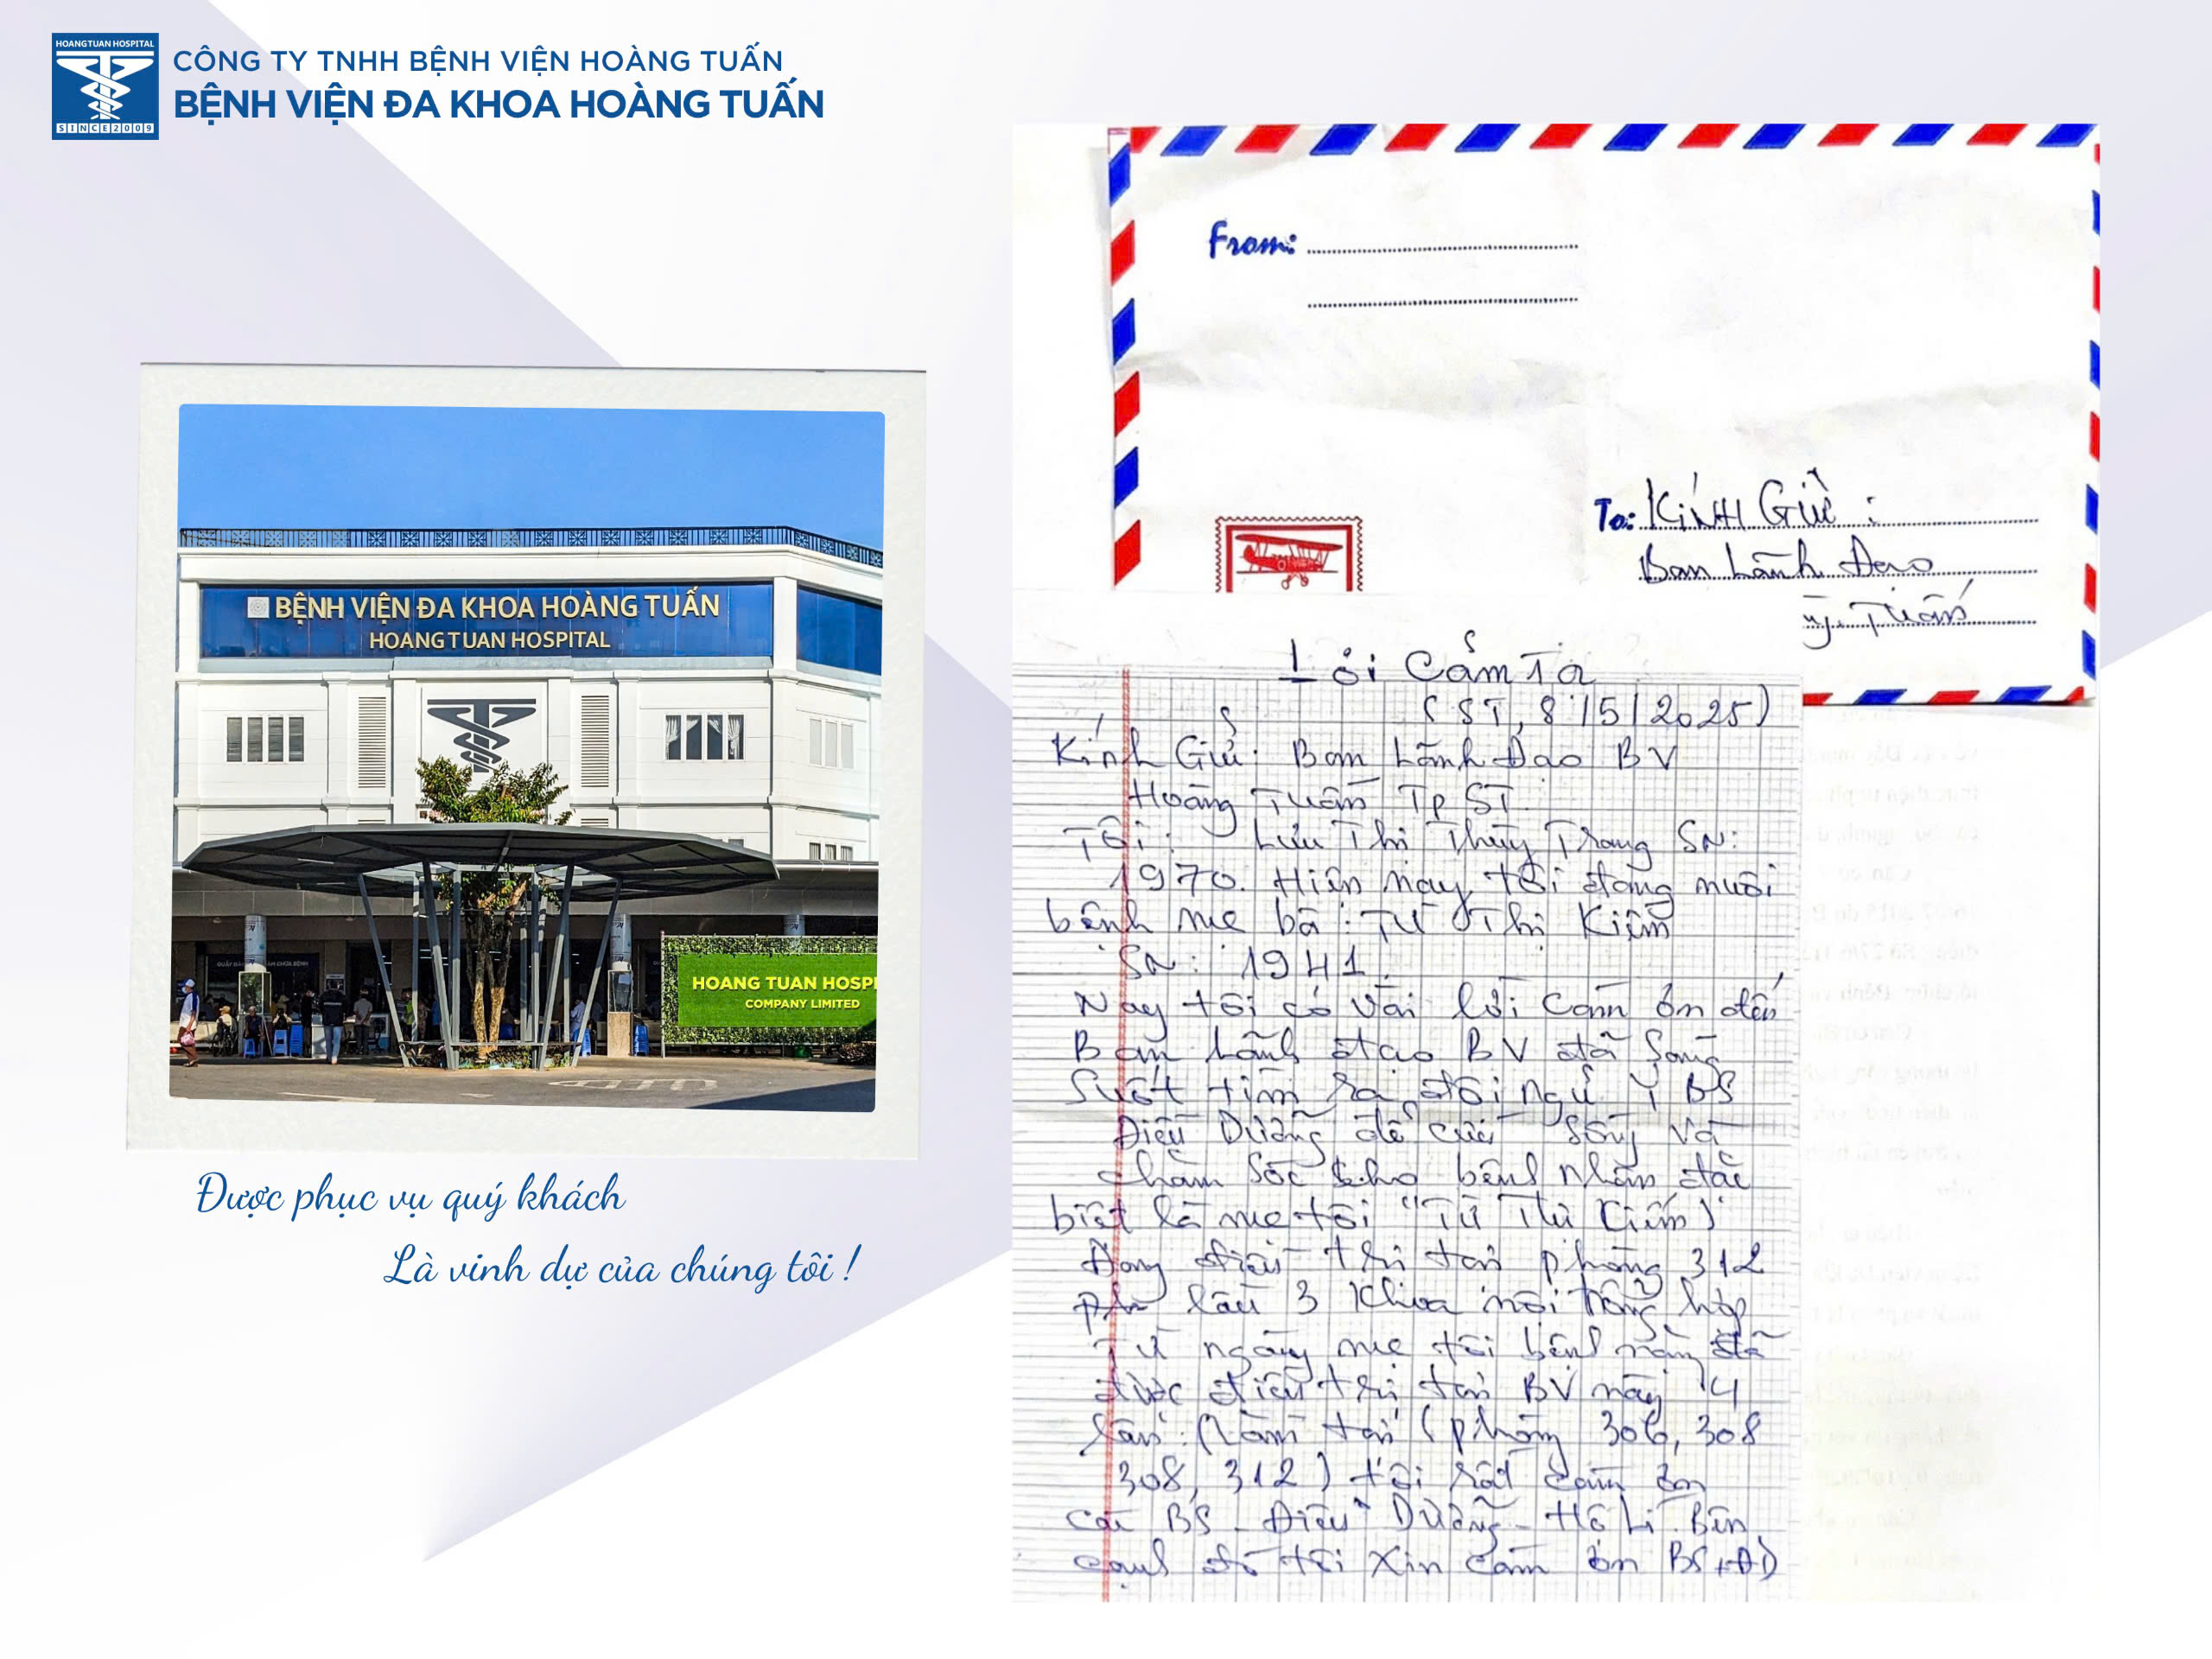 HOANG TUAN HOSPITAL
SINCE 2009
CÔNG TY TNHH BỆNH VIỆN HOÀNG TUẤN
BỆNH VIỆN ĐA KHOA HOÀNG TUẤN
BỆNH VIỆN ĐA KHOA HOÀNG TUẤN
HOANG TUAN HOSPITAL
HOANG TUAN HOSPI
COMPANY LIMITED
Được phục vụ quý khách
Là vinh dự của chúng tôi !
From:
To: KÍNH GỬi :
Ban Lãnh Đạo
Tuấn
Lời Cảm Tạ
(ST, 8/5/2025)
Kính Gửi: Ban Lãnh Đạo BV
Hoàng Tuấn Tp ST.
Tôi: Lưu Thị Thùy Trang SN:
1970. Hiện nay tôi đang nuôi
bệnh mẹ bà: Từ Thị Kiệm
SN: 1941.
Nay tôi có vài lời cảm ơn đến
Ban Lãnh đạo BV đã Sáng
Suốt tìm ra đội ngũ Y BS
Điều Dưỡng để cứu sống và
chăm sóc cho bệnh nhân đặc
biệt là mẹ tôi "Từ Thị
Đang điều trị tại phòng 312
lầu 3 Khoa nội tổng hợp
Từ ngày mẹ tôi bệnh nặng đã
được điều trị tại BV này 4
lần: (Nằm tại (phòng 306, 308
308, 312) tôi rất cảm ơn
các BS - Điều Dưỡng - Hộ Lí. Bên
cạnh đó tôi xin cảm ơn BS + ĐD